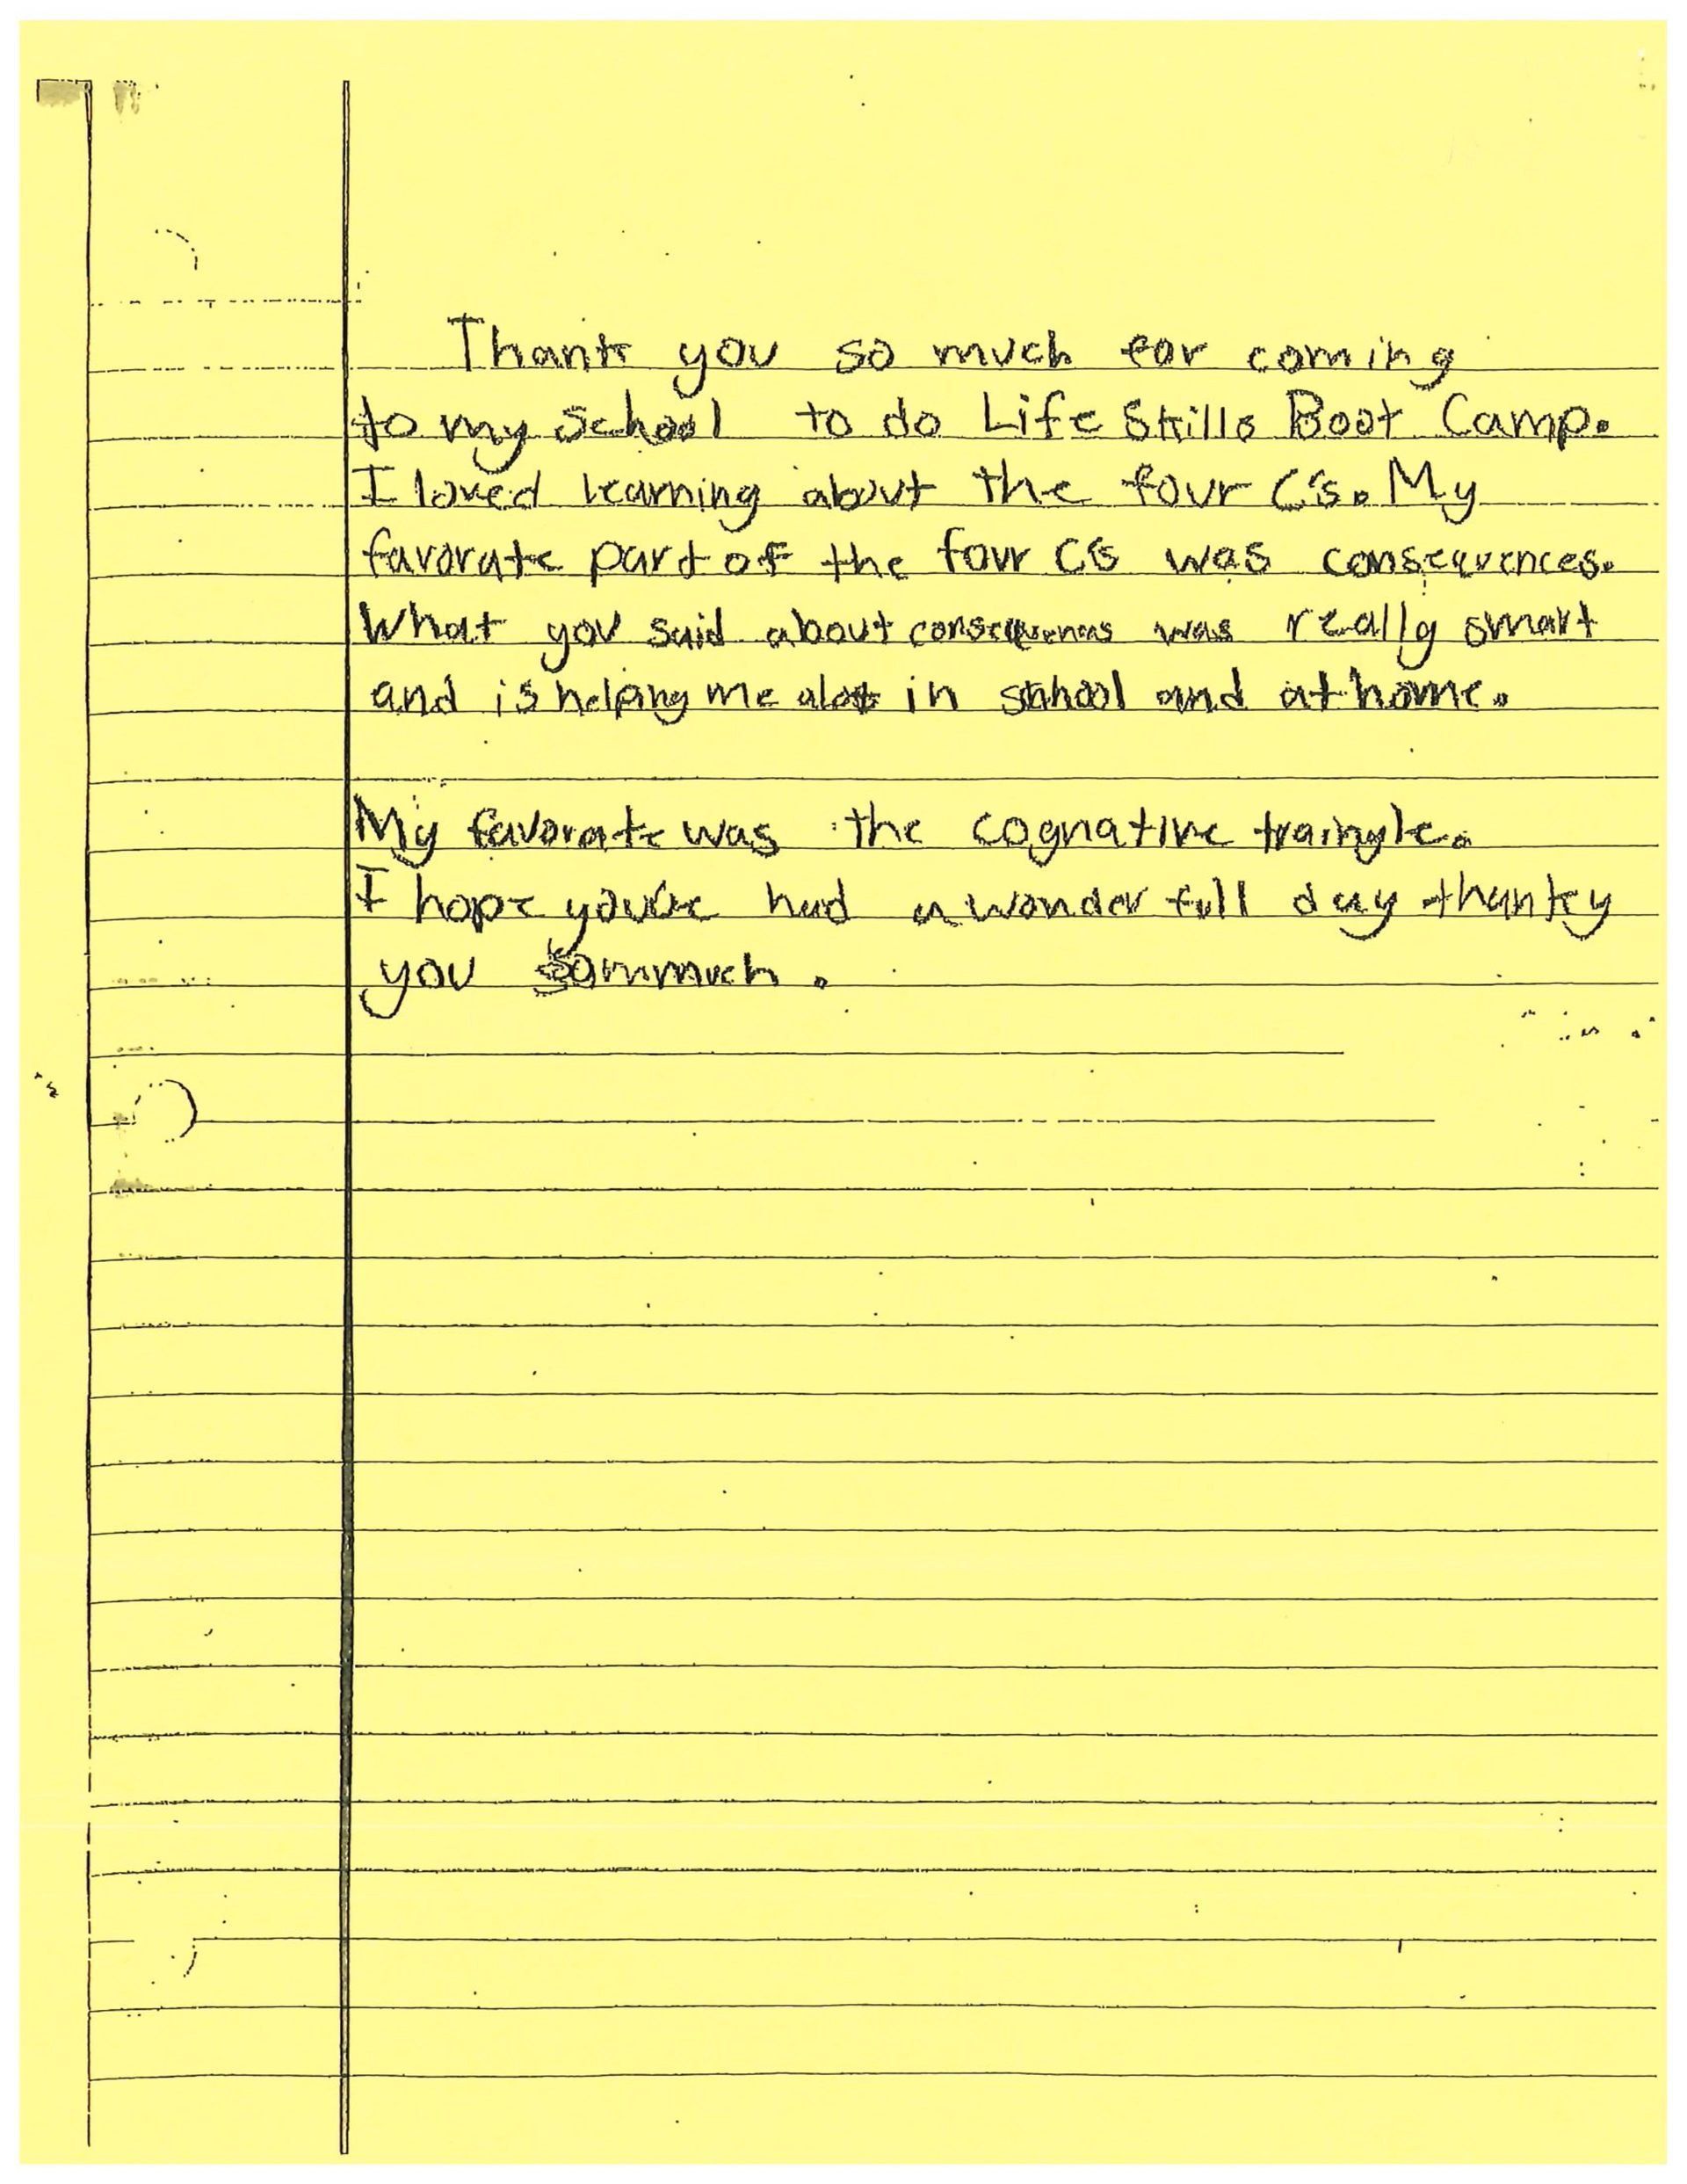 Thank you so much for coming
to my school to do Life Skills Boot Camp.
I loved learning about the four C's. My
favorate part of the four C's was consequences.
What you said about consequences was really smart
and is helping me alot in school and at home.
My favorate was the cognative traingle.
I hope you've had a wonder full day thanky
you sommuch.